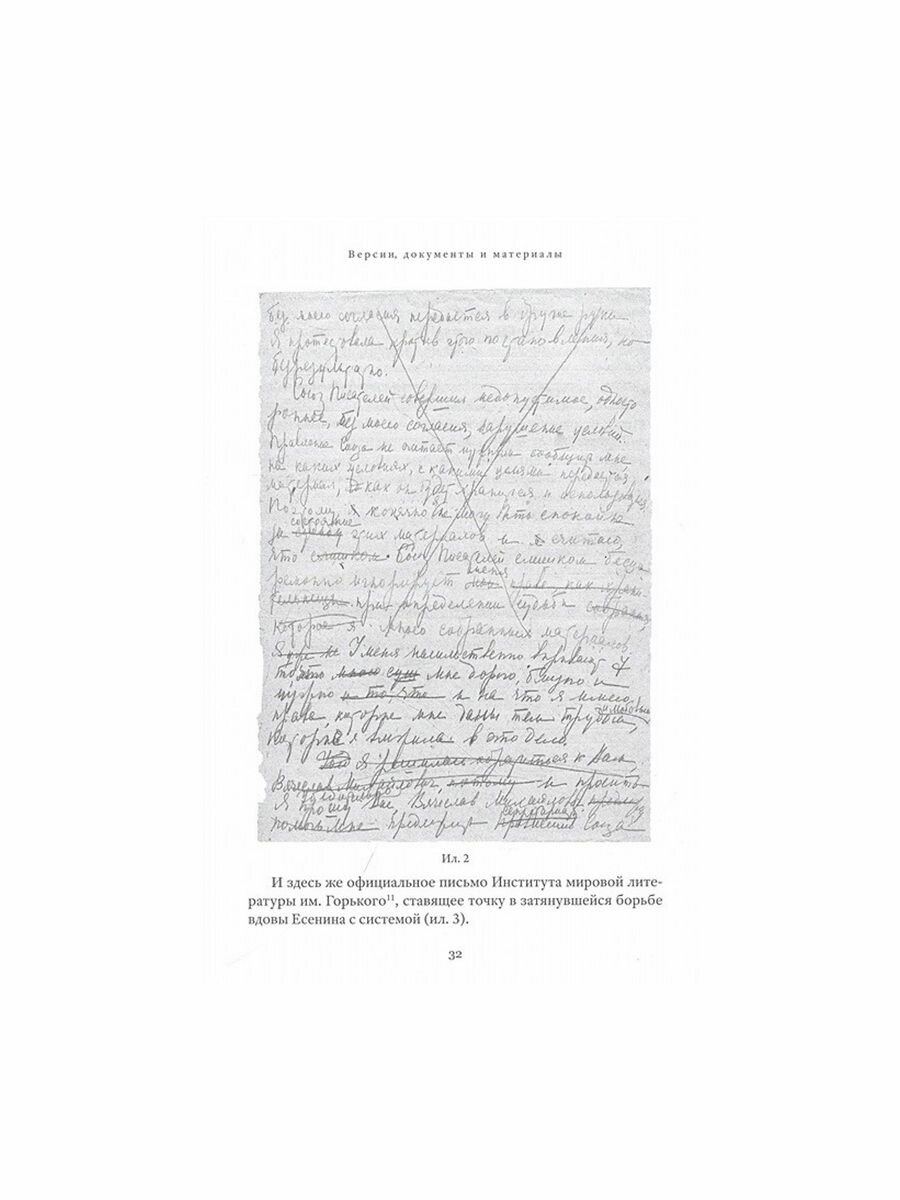 Версии, документы и материалы
без моего согласия передается в другие руки
Я протестовала против этого постановления, но
безрезультатно.
Союз Писателей совершил недопустимое, односто
роннее, без моего согласия, нарушение условий.
Правление Союза не считает нужным сообщить мне
на каких условиях, с какими целями передается
материал, и как он будет храниться и использован
Поэтому я конечно не могу быть спокойна
состояние
за этих материалов и я считаю,
что слишком Союз Писателей слишком бесце
ремонно игнорирует меня право как храни
тельницы при определении судьбы собрания,
которое я мною собранных материалов.
У меня насильственно вырывают
то что мне дорого, близко и
нужно и то что и на что я имею
права, которые мне даны тем трудом,
и любовью
которые я вложила в это дело.
я решилась обратиться к Вам,
Вячеслав Михайлович, потому и просить
Я прошу Вас Вячеслав Михайлович
помочь мне Союза
Ил. 2
И здесь же официальное письмо Института мировой лите-
ратуры им. Горького¹¹, ставящее точку в затянувшейся борьбе
вдовы Есенина с системой (ил. 3).
32